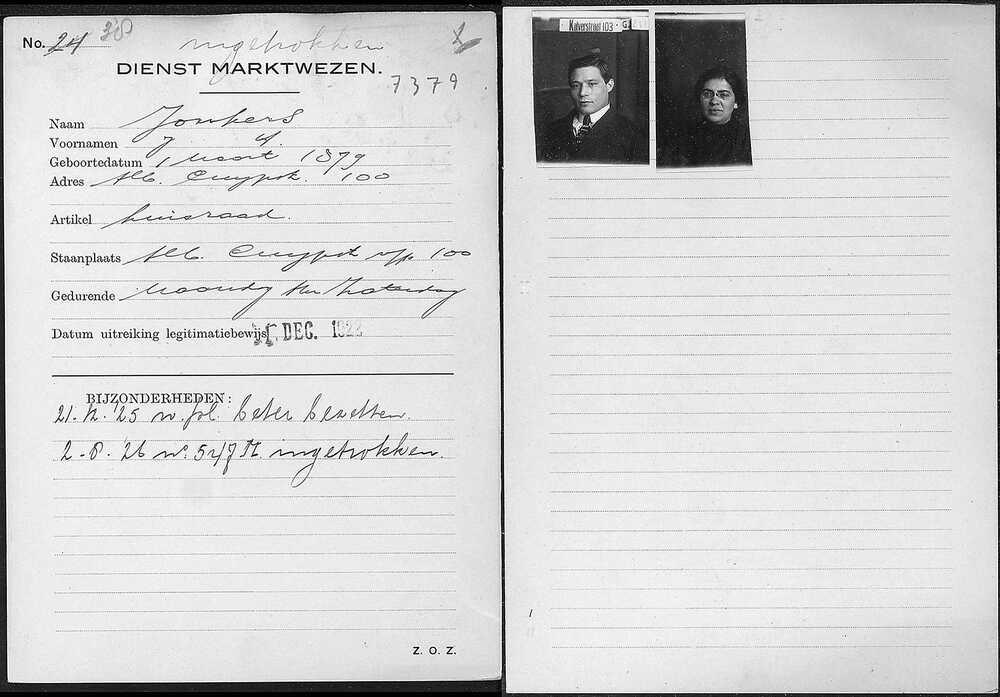 No. 24 38 ingetrokken
DIENST MARKTWEZEN.
7379
Naam Jonkers
Voornamen J. A.
Geboortedatum 1 Maart 1879
Adres Alb. Cuypstr. 100
Artikel huisraad.
Staanplaats Alb. Cuypstr 100
Gedurende Maandag t/m Zaterdag
Datum uitreiking legitimatiebewijs DEC. 1922
BIJZONDERHEDEN:
21. '25 beter bezetten.
2-8-'26 ingetrokken.
Z. O. Z.
Kalverstraat 103